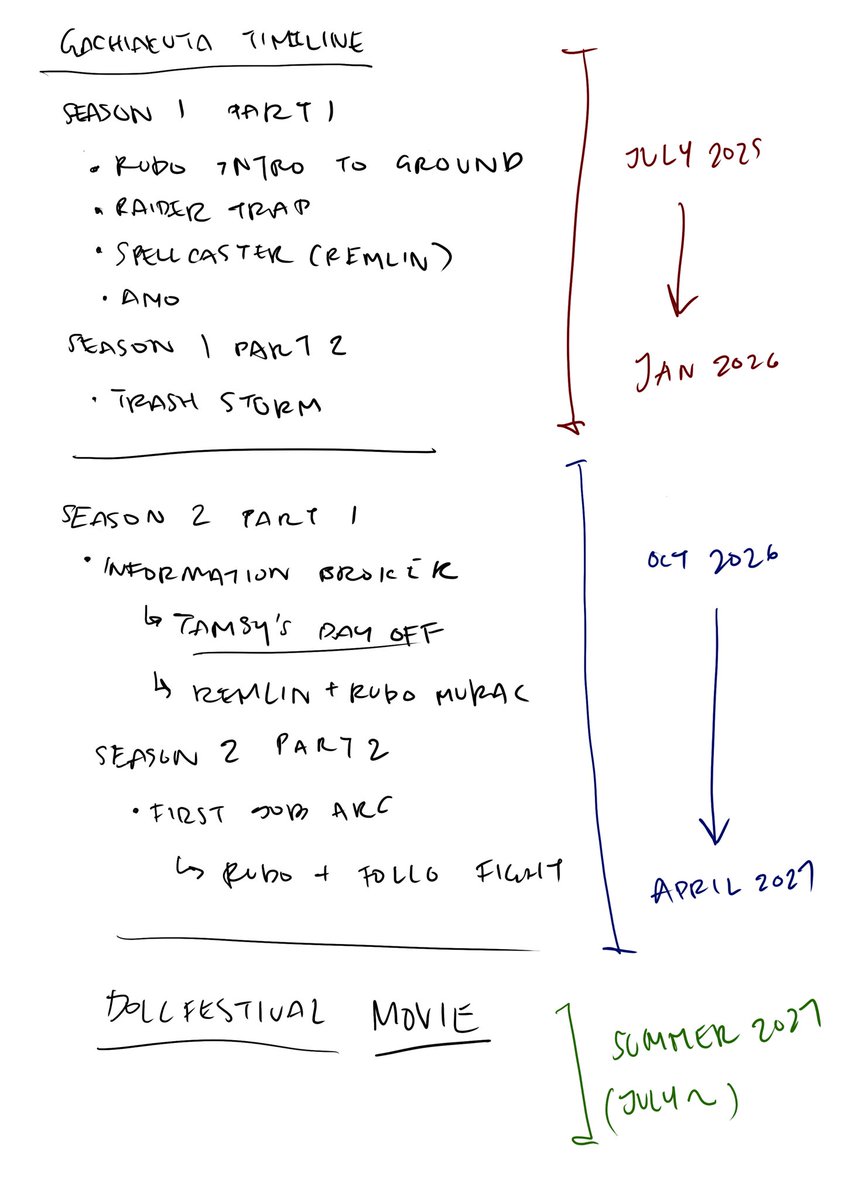 GACHIAKUTA TIMILINE
SEASON 1 PART 1
• RUDO INTRO TO GROUND
• RAIDER TRAP
• SPELLCASTER (REMLIN)
• AMO
SEASON 1 PART 2
• TRASH STORM
JULY 2025
JAN 2026
SEASON 2 PART 1
• INFORMATION BROKER
↳ TAMSY'S DAY OFF
↳ REMLIN + RUDO MURAL
SEASON 2 PART 2
• FIRST JOB ARC
↳ RUDO + FOLLO FIGHT
OCT 2026
APRIL 2027
DOLLFESTIVAL MOVIE
SUMMER 2027
(JULY~)